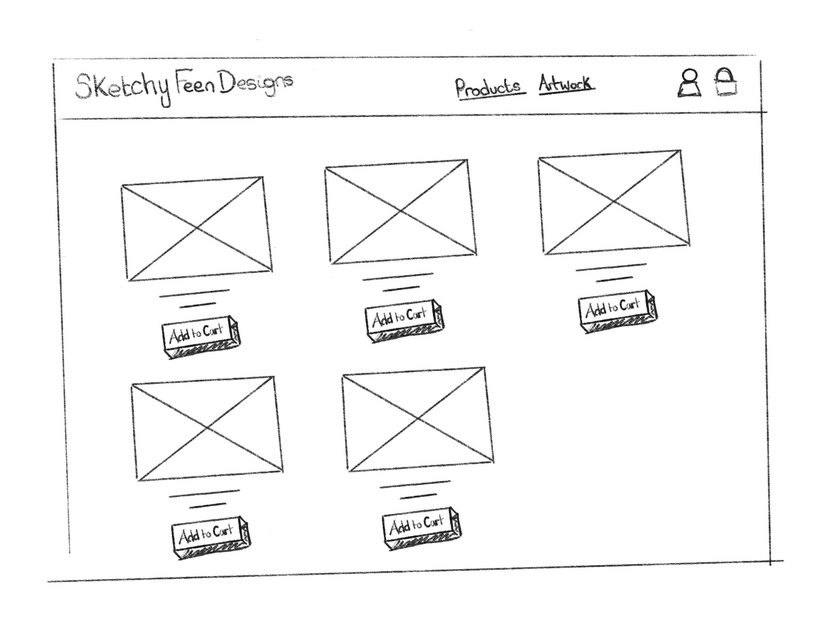 Sketchy Feen Designs
Products Artwork
Add to Cart
Add to Cart
Add to Cart
Add to Cart
Add to Cart